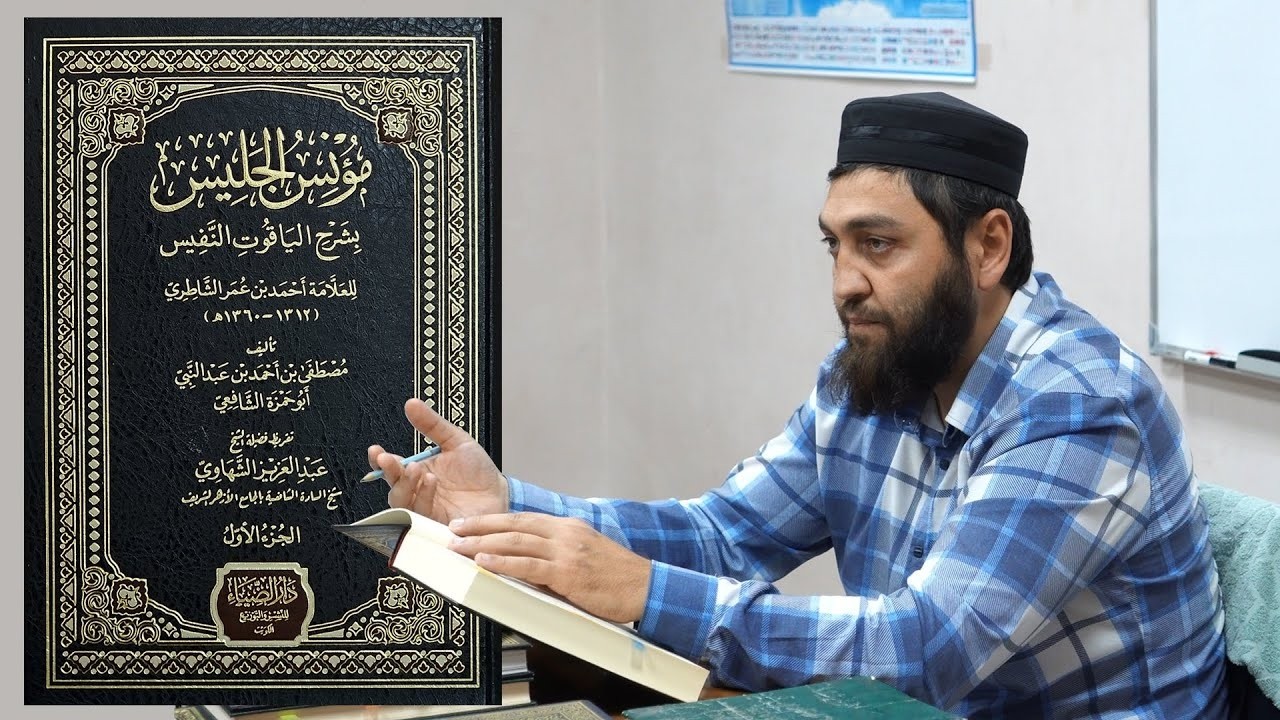 مُؤْنِسُ الجَلِيسِ
بِشَرْحِ اليَاقُوتِ النَّفِيسِ
لِلعَلَّامَة أَحْمَد بْن عُمَر الشَّاطِرِي
(١٣١٢ - ١٣٦٠هـ)
تأليف
مُصْطَفَى بْن أَحْمَد بْن عَبْد النَّبِيّ
أَبُو حَمْزَة الشَّافِعِيّ
تقريظ فضيلة الشيخ
عَبْد العَزِيز الشَّهَاوِيّ
شيخ السادة الشافعية بالجامع الأزهر الشريف
الجُزْءُ الأَوَّلُ
دَارُ الضِّيَاءِ
للنشر والتوزيع
الكويت